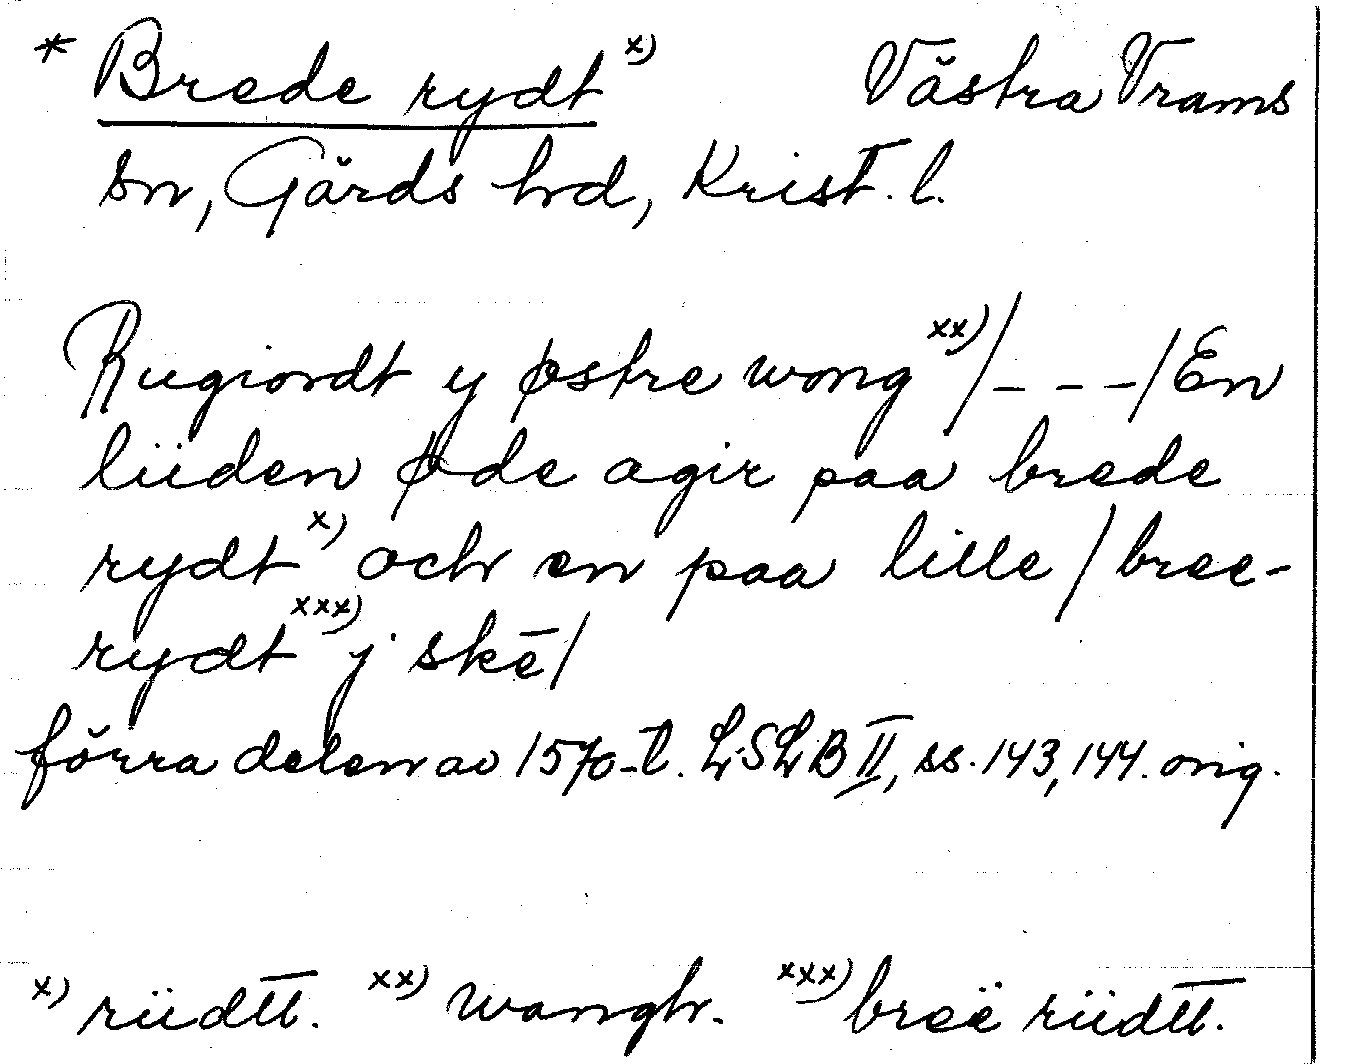 * Brede rydt x) Västra Vrams
sn, Gärds hd, Krist. l.
Rugiordt y østre wong xx) /- - -/ En
liiden øde agir paa brede
rydt x) och en paa lille / bree-
rydt xxx) j skē/
förra delen av 1570-t. LSLB II, ss. 143, 144. orig.
x) riidtt. xx) wangh. xxx) breë riidtt.